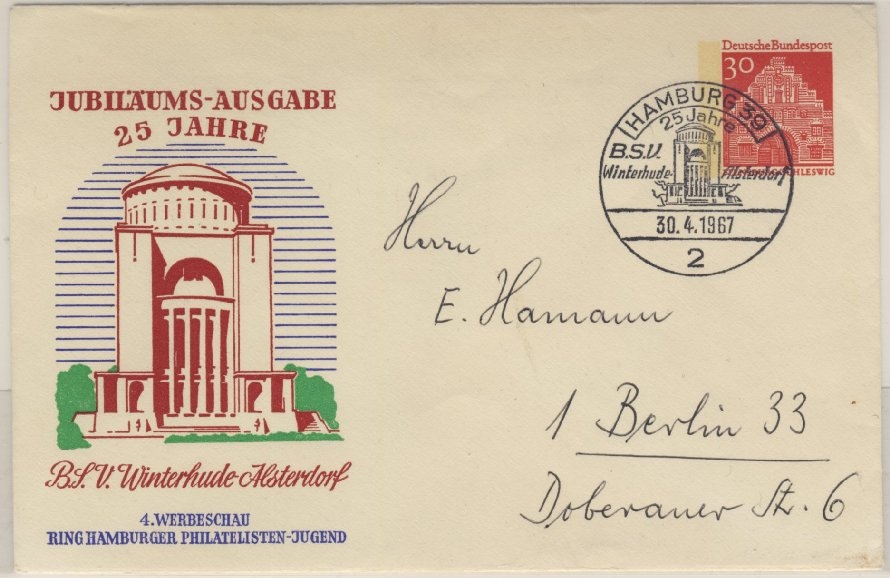 JUBILÄUMS-AUSGABE
25 JAHRE
B.S.V. Winterhude-Alsterdorf
4. WERBESCHAU
RING HAMBURGER PHILATELISTEN-JUGEND
Deutsche Bundespost
30
SCHLESWIG
HAMBURG 39
25 Jahre
B.S.V.
Winterhude-Alsterdorf
30.4.1967
2
Herrn
E. Hamann
1 Berlin 33
Doberaner Str. 6